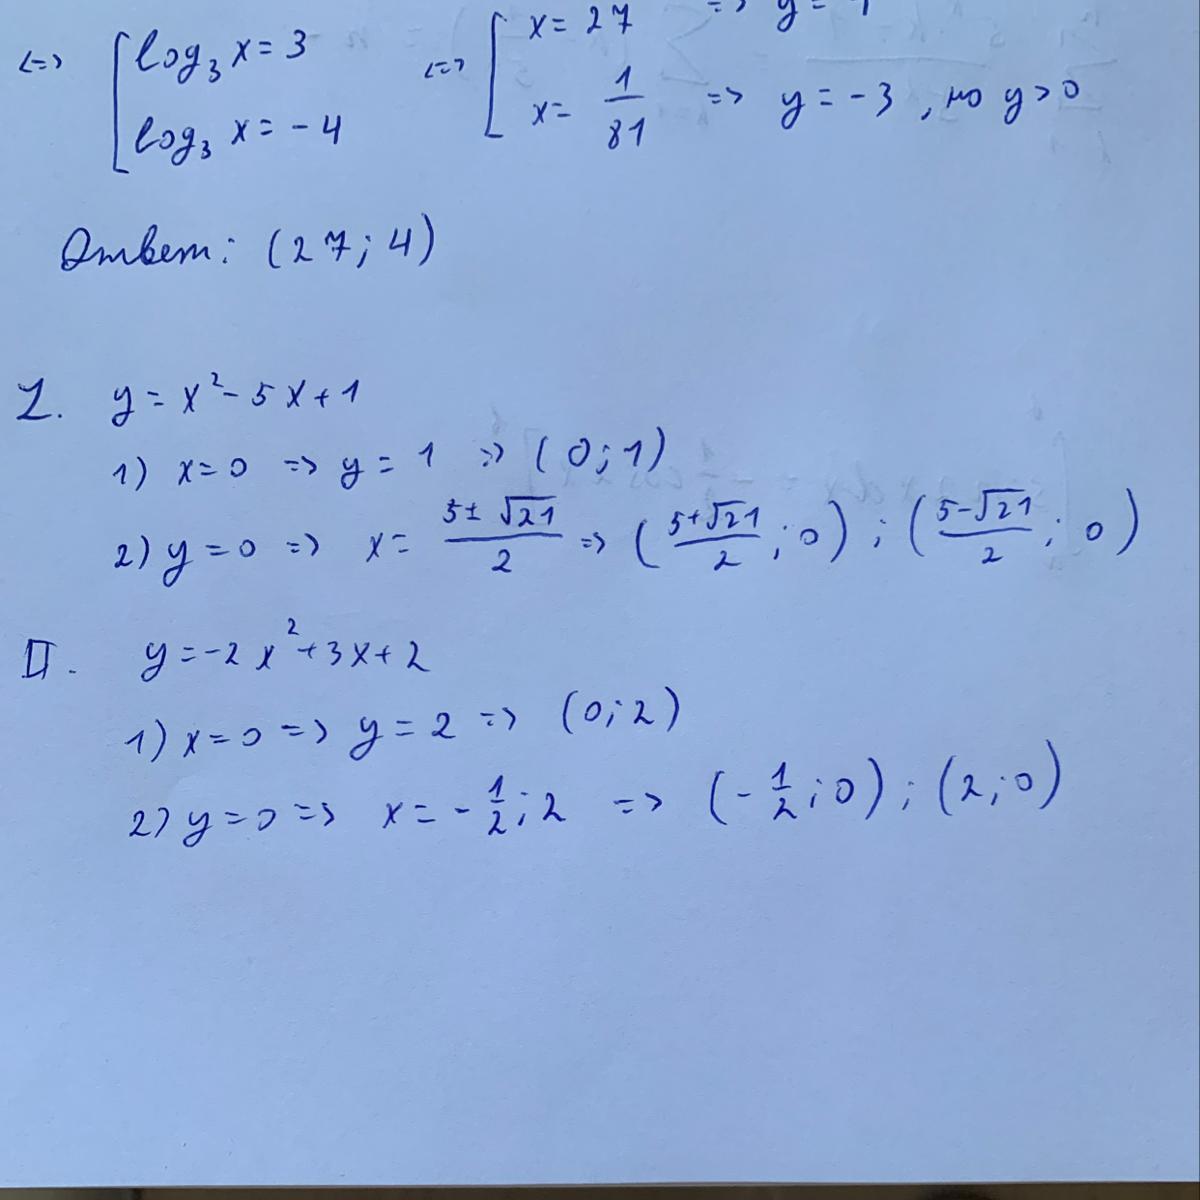 <=> [ log₃ x = 3 <=> [ x = 27 => y = 4
log₃ x = - 4 x = 1/81 => y = - 3 , но y > 0
Ответ: (27; 4)
I. y = x² - 5x + 1
1) x = 0 => y = 1 => (0; 1)
2) y = 0 => x = (5 ± √21)/2 => ((5+√21)/2 ; 0) ; ((5-√21)/2 ; 0)
II. y = -2x² + 3x + 2
1) x = 0 => y = 2 => (0; 2)
2) y = 0 => x = - 1/2 ; 2 => (- 1/2 ; 0) ; (2; 0)